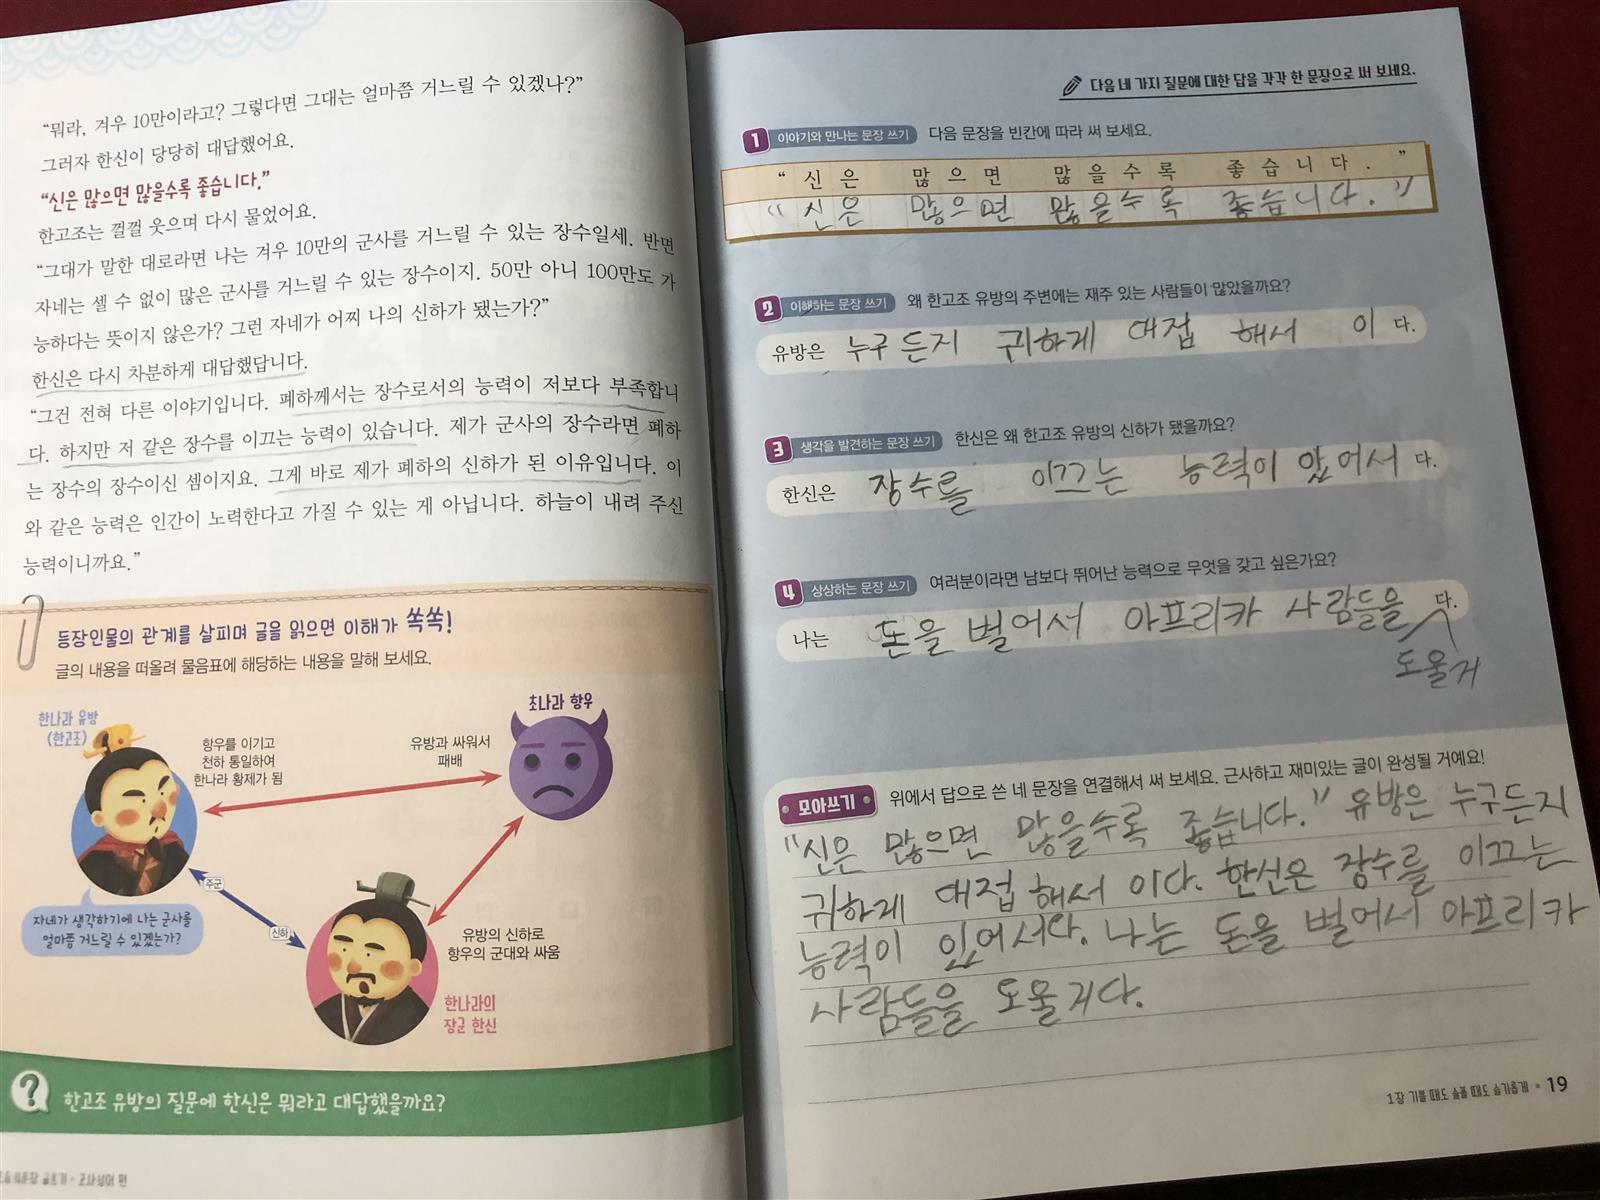 "뭐라, 겨우 10만이라고? 그렇다면 그대는 얼마쯤 거느릴 수 있겠나?"
그러자 한신이 당당히 대답했어요.
"신은 많으면 많을수록 좋습니다."
한고조는 껄껄 웃으며 다시 물었어요.
"그대가 말한 대로라면 나는 겨우 10만의 군사를 거느릴 수 있는 장수일세. 반면
자네는 셀 수 없이 많은 군사를 거느릴 수 있는 장수이지. 50만 아니 100만도 가
능하다는 뜻이지 않은가? 그런 자네가 어찌 나의 신하가 됐는가?"
한신은 다시 차분하게 대답했답니다.
"그건 전혀 다른 이야기입니다. 폐하께서는 장수로서의 능력이 저보다 부족합니
다. 하지만 저 같은 장수를 이끄는 능력이 있습니다. 제가 군사의 장수라면 폐하
는 장수의 장수이신 셈이지요. 그게 바로 제가 폐하의 신하가 된 이유입니다. 이
와 같은 능력은 인간이 노력한다고 가질 수 있는 게 아닙니다. 하늘이 내려 주신
능력이니까요."
등장인물의 관계를 살피며 글을 읽으면 이해가 쏙쏙!
글의 내용을 떠올려 물음표에 해당하는 내용을 말해 보세요.
한나라 유방
(한고조)
항우를 이기고
천하 통일하여
한나라 황제가 됨
유방과 싸워서
패배
초나라 항우
주군
신하
자네가 생각하기에 나는 군사를
얼마쯤 거느릴 수 있겠는가?
유방의 신하로
항우의 군대와 싸움
한나라의
장군 한신
? 한고조 유방의 질문에 한신은 뭐라고 대답했을까요?
고사성어 편
다음 네 가지 질문에 대한 답을 각각 한 문장으로 써 보세요.
1 이야기와 만나는 문장 쓰기 다음 문장을 빈칸에 따라 써 보세요.
"신은 많으면 많을수록 좋습니다."
"신은 많으면 많을수록 좋습니다."
2 이해하는 문장 쓰기 왜 한고조 유방의 주변에는 재주 있는 사람들이 많았을까요?
유방은 누구든지 귀하게 대접 해서 이 다.
3 생각을 발견하는 문장 쓰기 한신은 왜 한고조 유방의 신하가 됐을까요?
한신은 장수를 이끄는 능력이 있어서 다.
4 상상하는 문장 쓰기 여러분이라면 남보다 뛰어난 능력으로 무엇을 갖고 싶은가요?
나는 돈을 벌어서 아프리카 사람들을 다.
도울거
모아쓰기 위에서 답으로 쓴 네 문장을 연결해서 써 보세요. 근사하고 재미있는 글이 완성될 거예요!
"신은 많으면 많을수록 좋습니다." 유방은 누구든지
귀하게 대접 해서 이다. 한신은 장수를 이끄는
능력이 있어서다. 나는 돈을 벌어서 아프리카
사람들을 도울거다.
1장 기쁠 때도 슬플 때도 슬기롭게 • 19